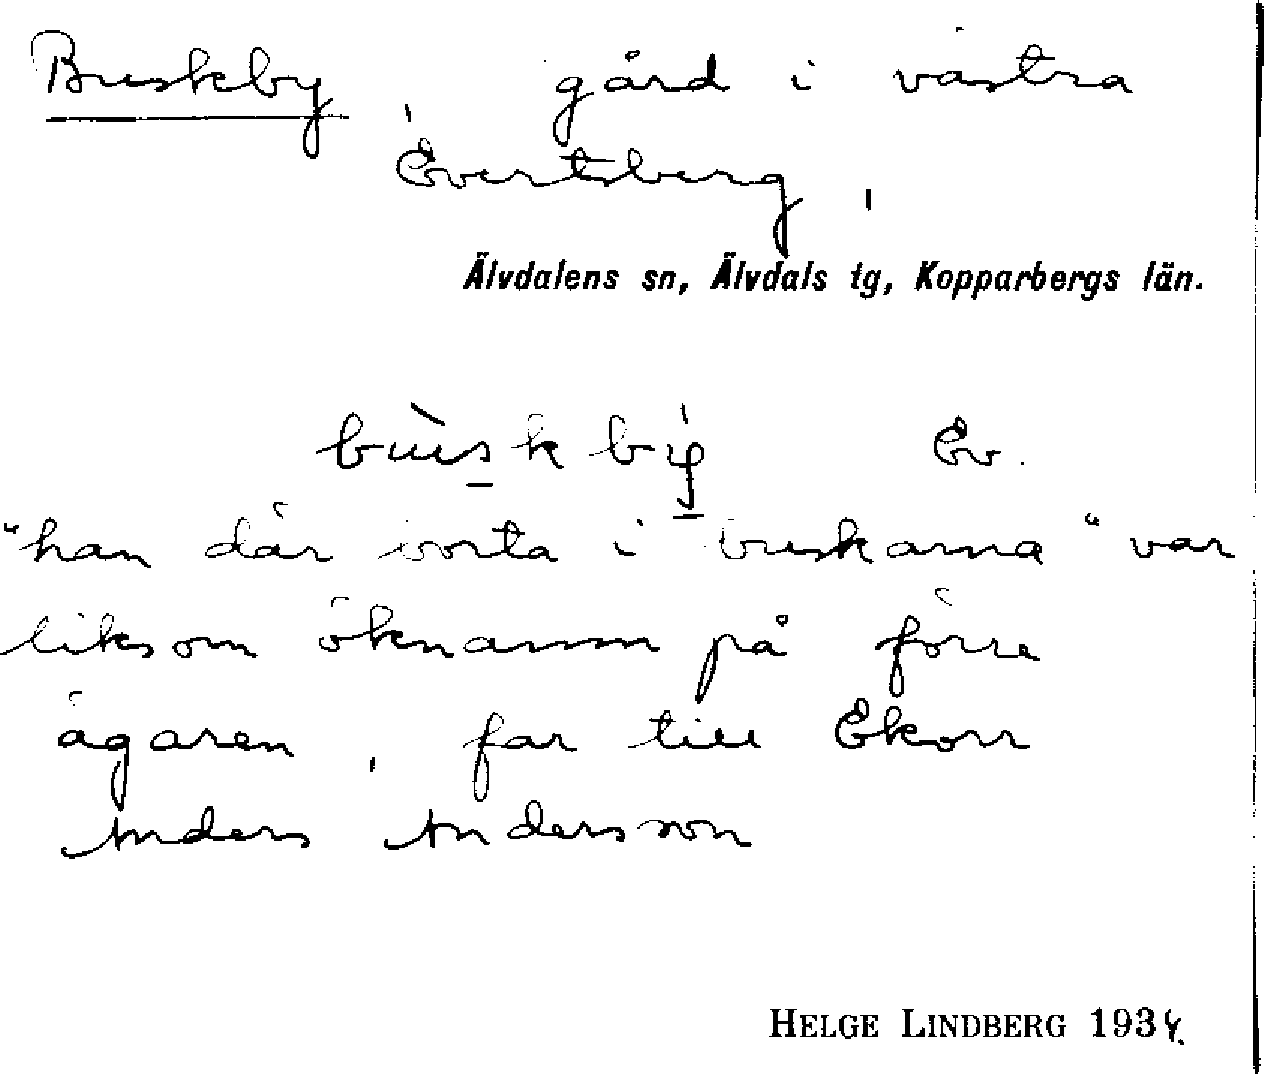 Buskby, gård i västra
Evertsberg,
Älvdalens sn, Älvdals tg, Kopparbergs län.
bùskbý Ev.
"han där borta i buskarna" var
liksom öknamn på förre
ägaren, far till Ekorr
Anders Andersson
HELGE LINDBERG 1934.